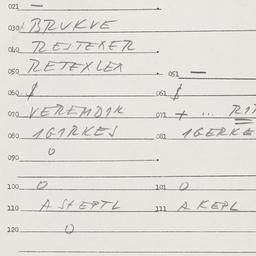 021 —
030 BRUKVE
040 RESTEXER
050 RETEXLEX 051 —
060 $ 061 $
070 VEREMDIK 071 + ...
080 1GIRKES 081 1GERKE
090 0
100 0 101 0
110 A StEPTL 111 A KEPL
120 0